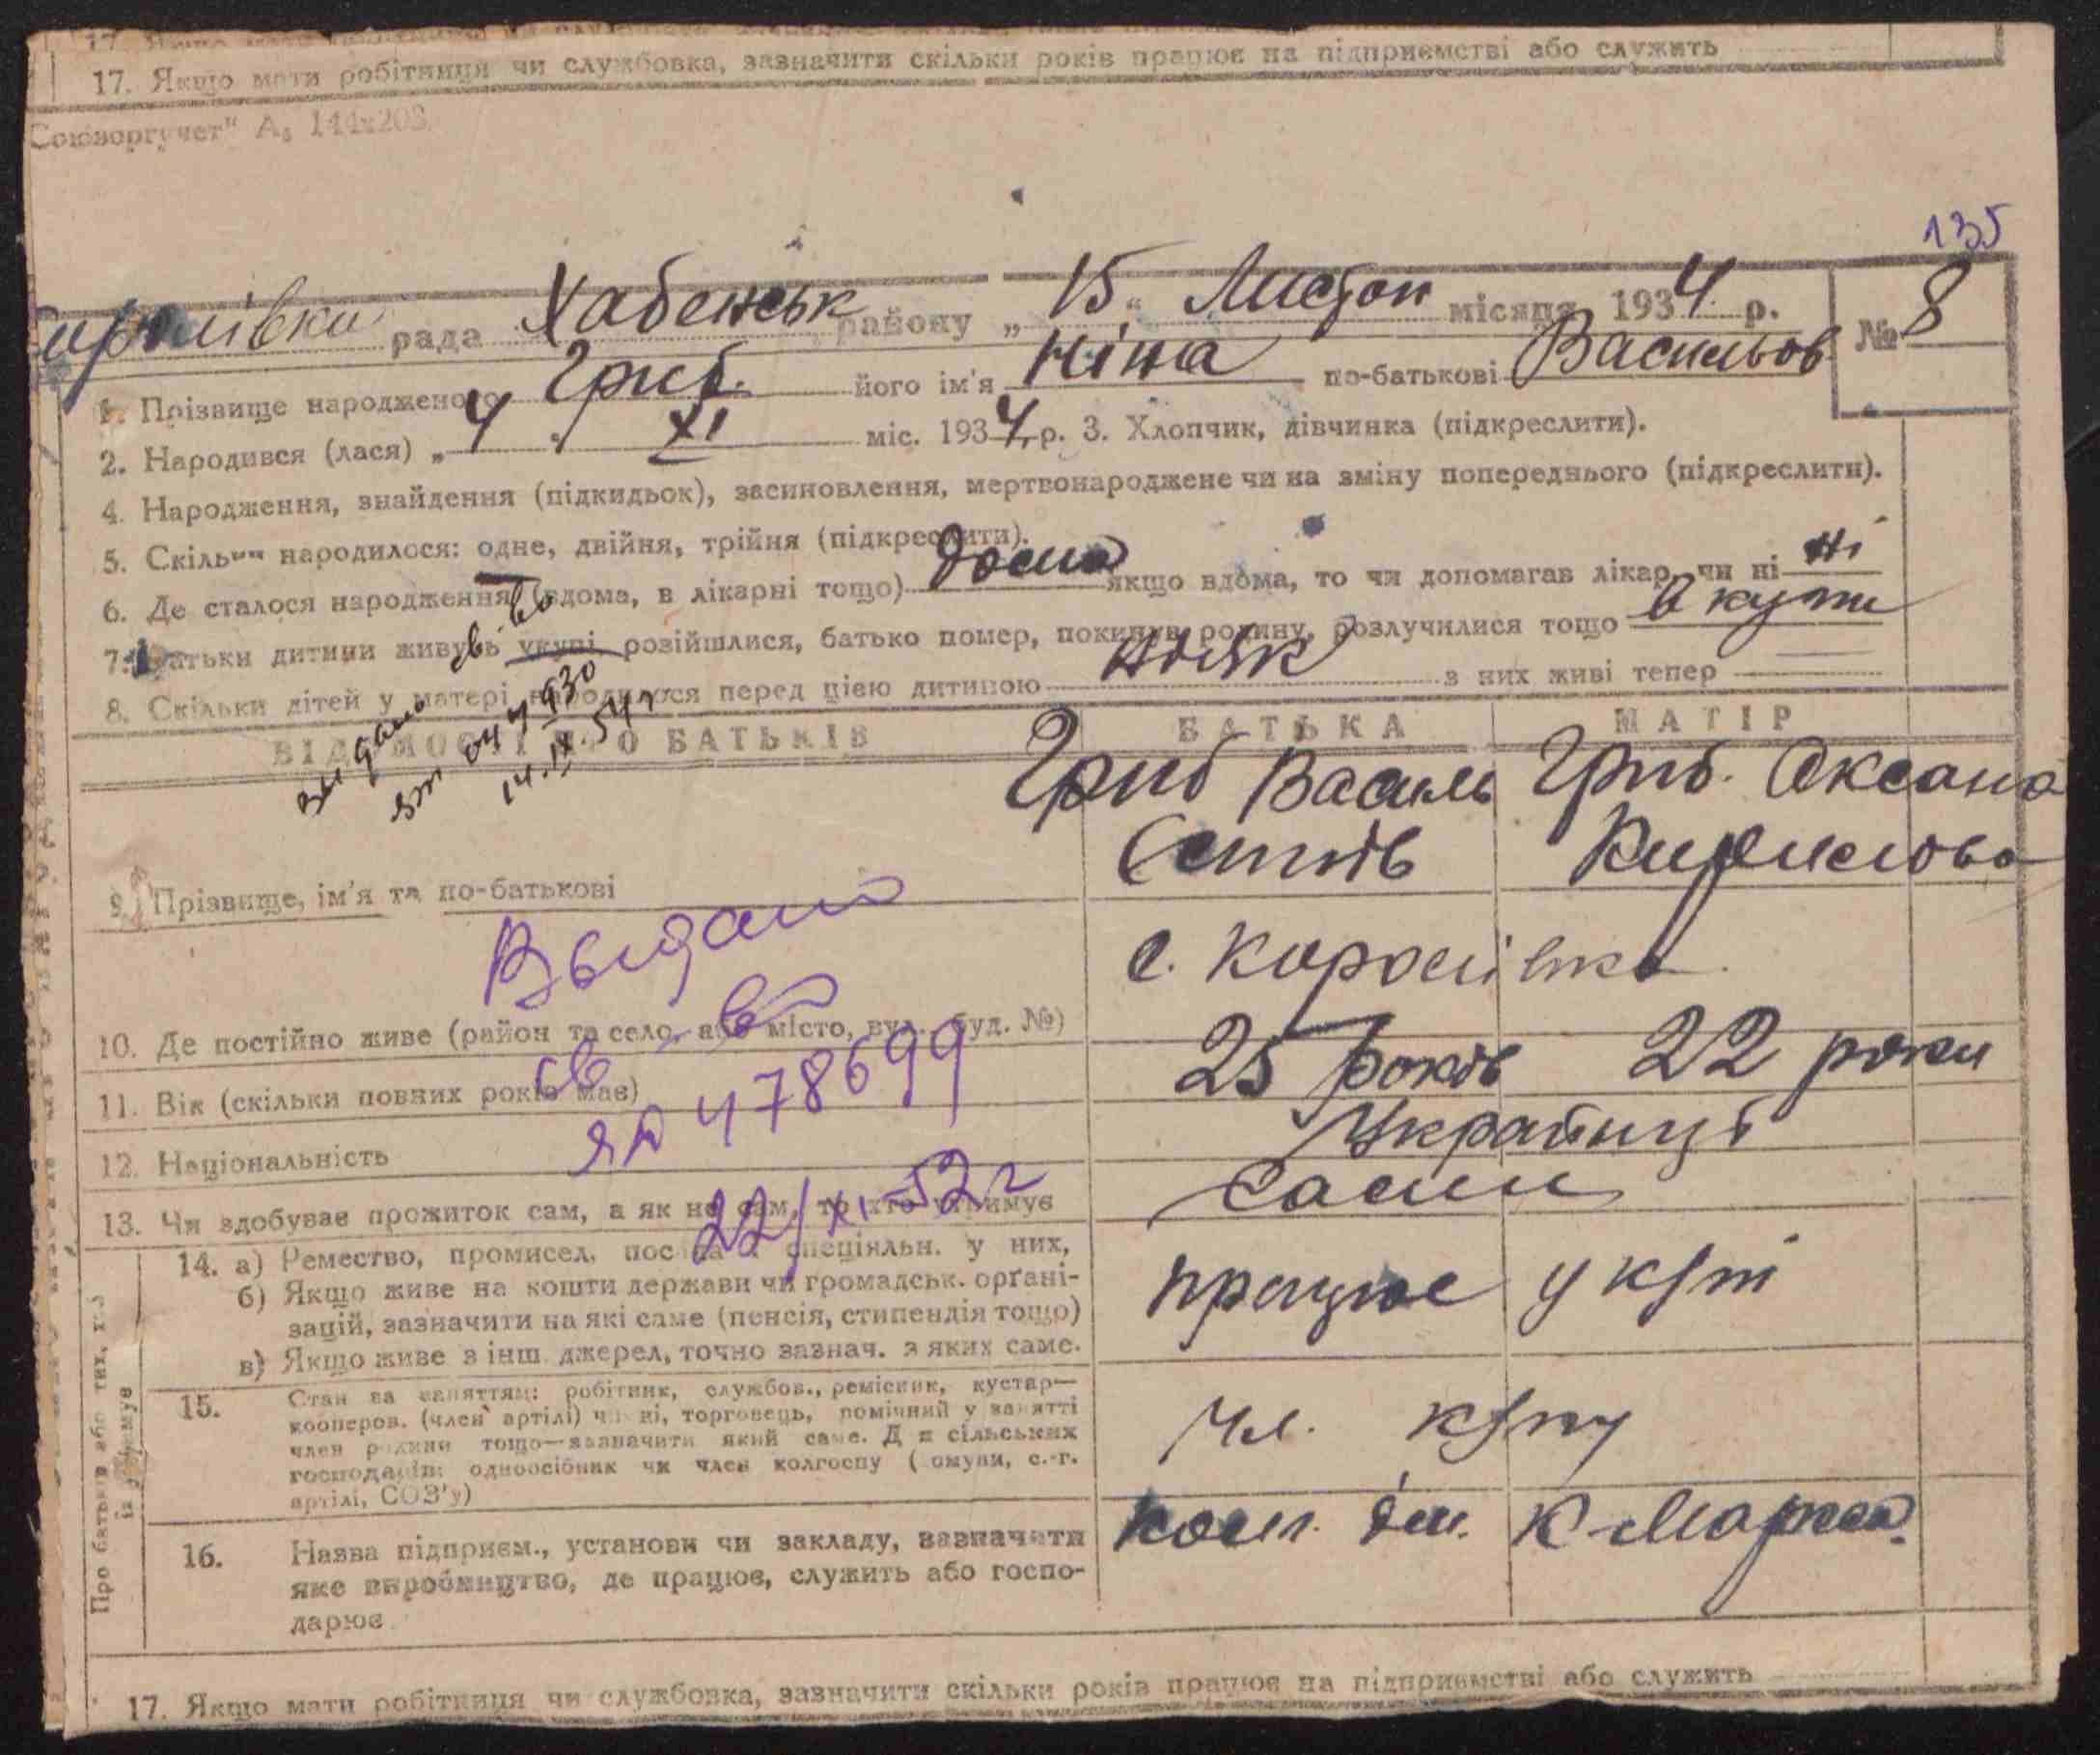 17. Якщо мати робітниця чи службовка, зазначити скільки років працює на підприємстві або служить
Союзоргучет" А₅ 144х203
135
рада Хабенськ району „15" Листоп місяця 1934 р. № 8
1. Прізвище народженого Гриб його ім'я Ніна по-батькові Васильов
2. Народився (лася) „4" XI міс. 1934 р. 3. Хлопчик, дівчинка (підкреслити).
4. Народження, знайдення (підкидьок), засиновлення, мертвонароджене чи на зміну попереднього (підкреслити).
5. Скільки народилося: одне, двійня, трійня (підкреслити).
6. Де сталося народження (вдома, в лікарні тощо) дома якщо вдома, то чи допомагав лікар, чи ні ні
7. Батьки дитини живуть укупі, розійшлися, батько помер, покинув родину, розлучилися тощо вкупи
8. Скільки дітей у матері народилося перед цією дитиною з них живі тепер
выдано св-во
044930
14. IX 54 г
ВІДОМОСТІ ПРО БАТЬКІВ БАТЬКА МАТІР
9. Прізвище, ім'я та по-батькові
Гриб Василь Гриб. Оксана
Кирилова
Выдано
св-во
478699
22/XI-52 г
10. Де постійно живе (район та село, або місто, вул., буд. №) с.
11. Вік (скільки повних років має) 25 років 22 роки
12. Національність Українці
13. Чи здобуває прожиток сам, а як не сам, то хто утримує сами
Про батьків або тих, хто їх утримує
14. а) Ремество, промисел, посада і спеціяльн. у них,
б) Якщо живе на кошти держави чи громадськ. орґані-
зацій, зазначити на які саме (пенсія, стипендія тощо)
в) Якщо живе з інш. джерел, точно зазнач. з яких саме.
працює у к/гт
15. Стан за заняттям: робітник, службов., ремісник, кустар—
кооперов. (член артілі) чи ні, торговець, помічний у занятті
член родини тощо—зазначити який саме. Для сільських
господарів: одноосібник чи член колгоспу (комуни, с.-г.
артілі, СОЗ'у)
чл. к/гпу
16. Назва підприєм., установи чи закладу, зазначити
яке виробництво, де працює, служить або госпо-
дарює
ім. К-Маркса.
17. Якщо мати робітниця чи службовка, зазначити скільки років працює на підприємстві або служить